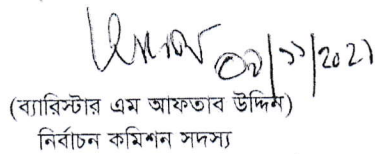 /১১/2021
(ব্যারিস্টার এম আফতাব উদ্দিন)
নির্বাচন কমিশন সদস্য